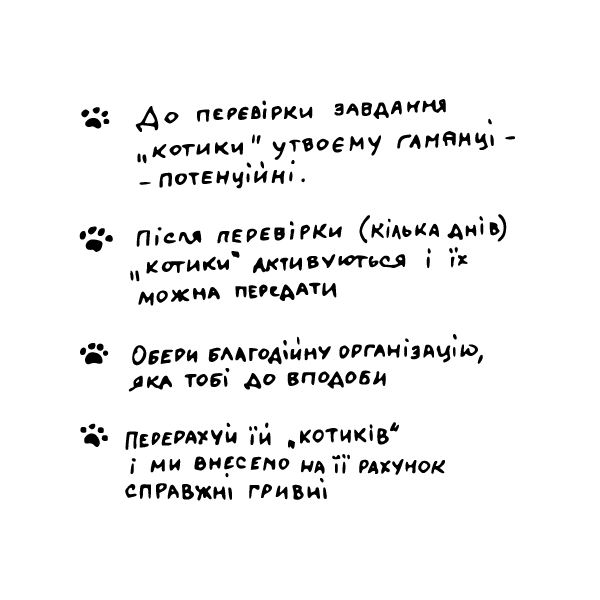 До перевірки завдання
„котики" у твоєму гаманці -
- потенційні.
Після перевірки (кілька днів)
„котики" активуються і їх
можна передати
Обери благодійну організацію,
яка тобі до вподоби
Перерахуй їй „котиків"
і ми внесемо на її рахунок
справжні гривні